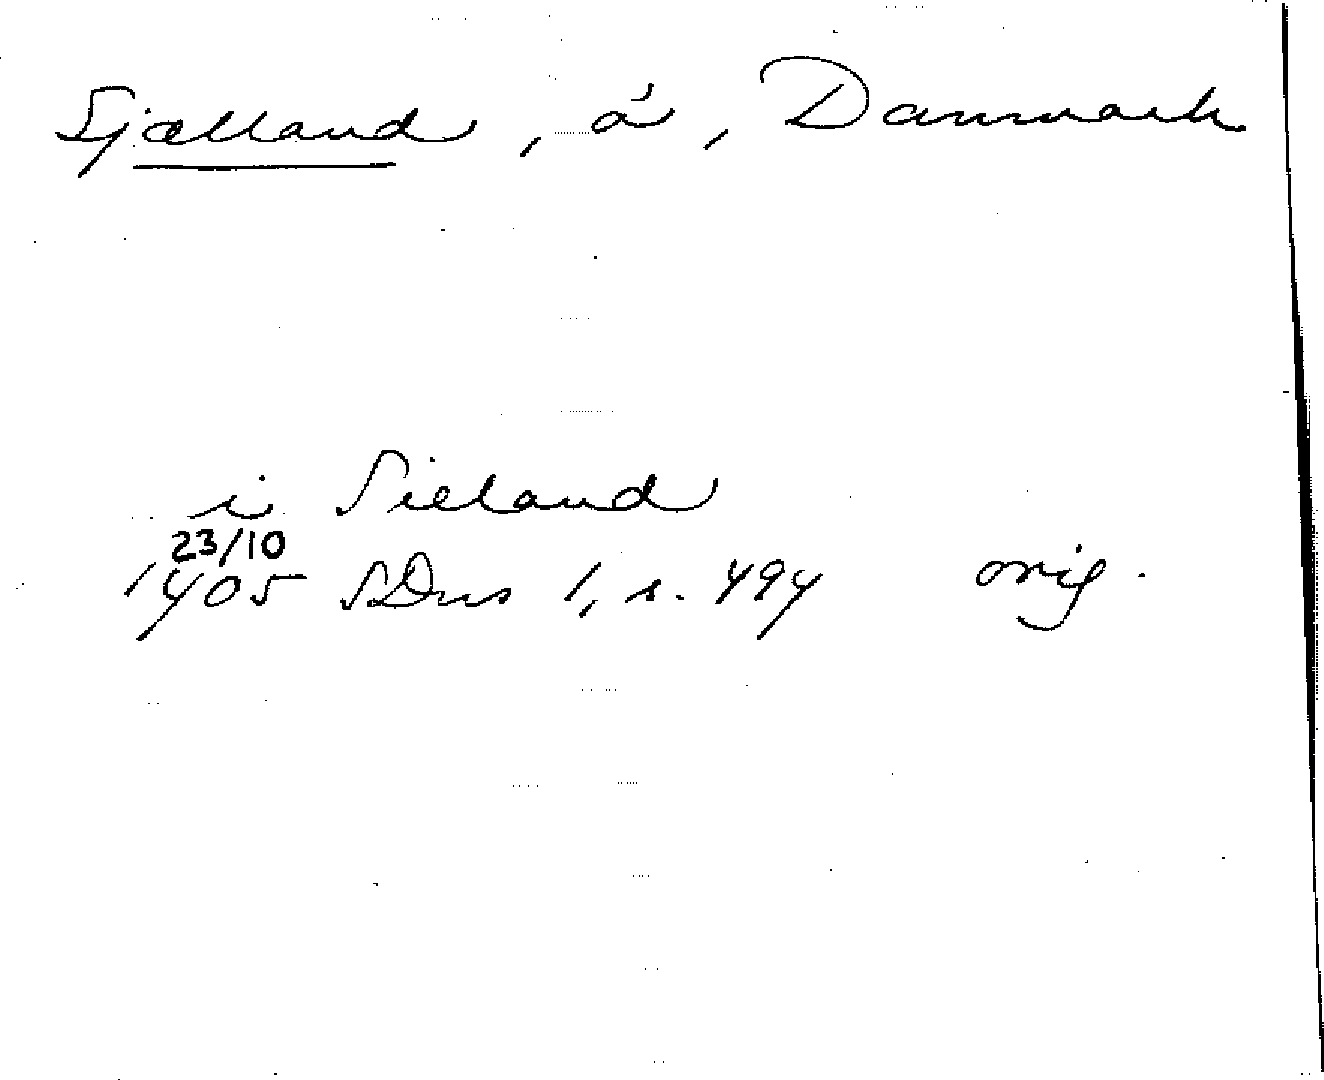 Sjælland, ö, Danmark
i Sieland
23/10
1405 SDns 1, s. 494 orig.